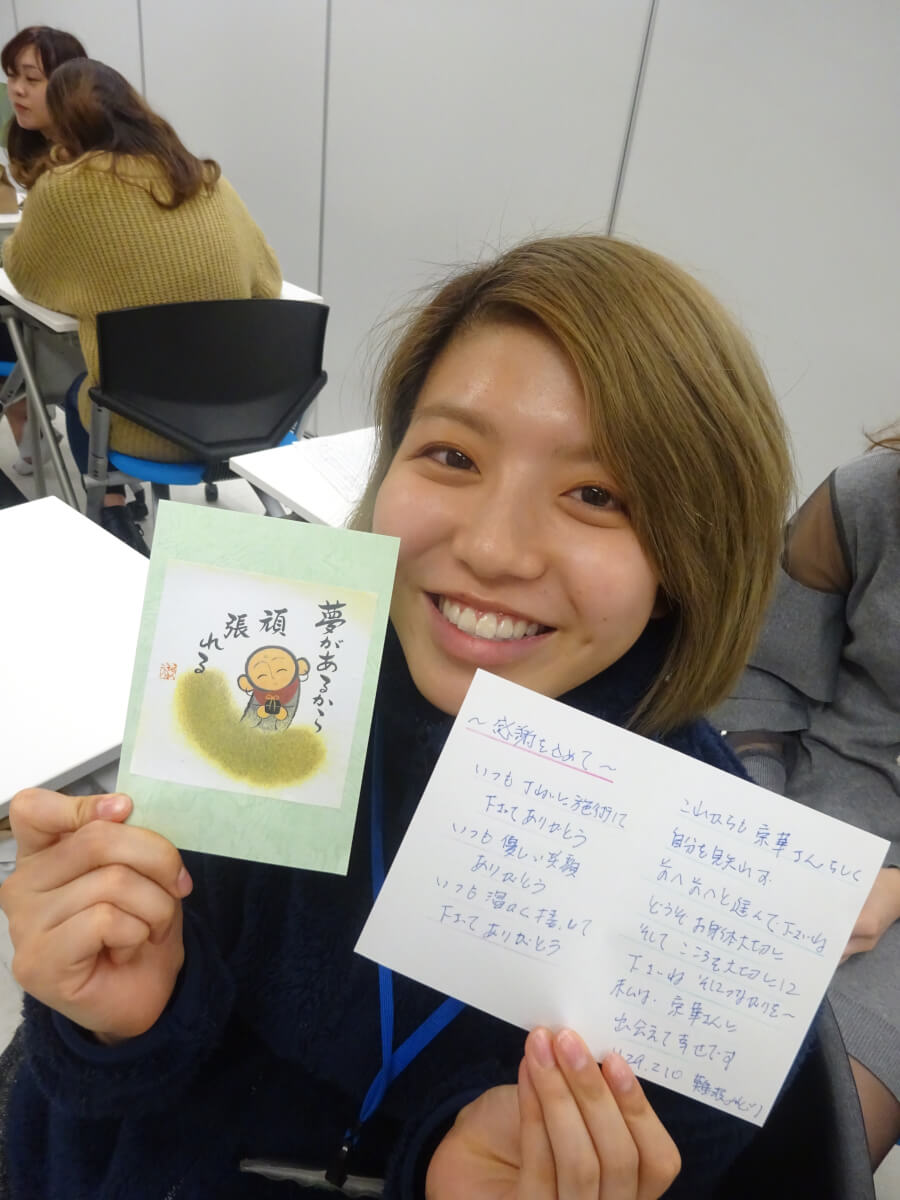 夢があるから
頑
張
れる
～感謝を込めて～
いつも丁ねいに施術して
下さってありがとう
いつも優しい笑顔
ありがとう
いつも温かく接して
下さってありがとう
これからも京華さんらしく
自分を見失わず
前へ前へと進んで下さいね
どうぞお身体大切に
そしてこころを大切にして
下さいね そして
私は、京華さんと
出会えて幸せです
H29.2.10